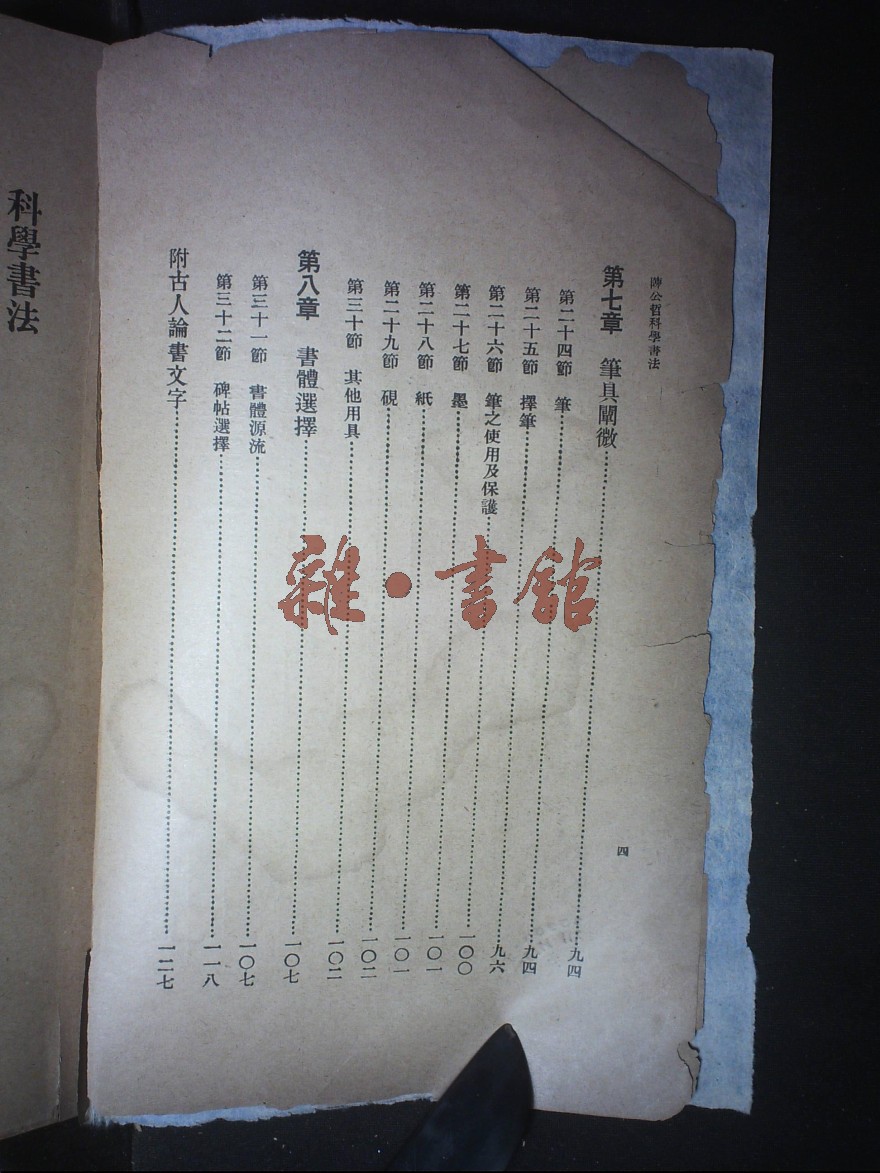 陳公哲科學書法
四
第七章 筆具闡微……九四
第二十四節 筆……九四
第二十五節 擇筆……九六
第二十六節 筆之使用及保護……一〇〇
第二十七節 墨……一〇一
第二十八節 紙……一〇一
第二十九節 硯……一〇二
第三十節 其他用具……一〇二
第八章 書體選擇……一〇七
第三十一節 書體源流……一〇七
第三十二節 碑帖選擇……一一八
附古人論書文字……一二七
科學書法
雜·書館